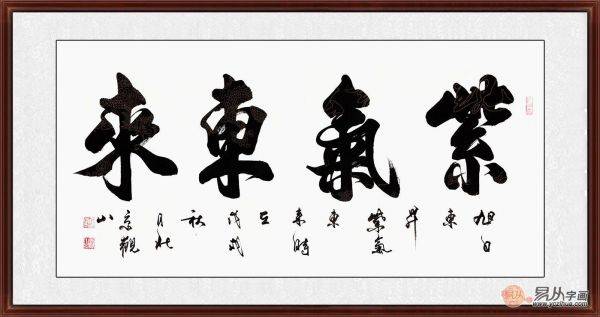 紫氣東來
旭日
東
昇
紫氣
東
来時
戊戌
秋
月北
京觀
山
易从字画
www.yczihua.com